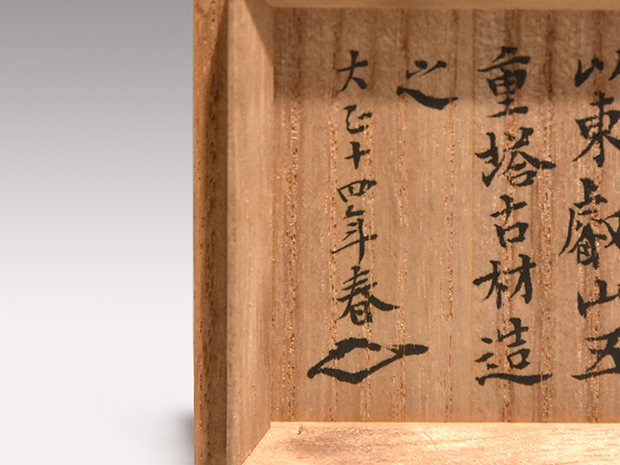 以東叡山五
重塔古材造
之
大正十四年春